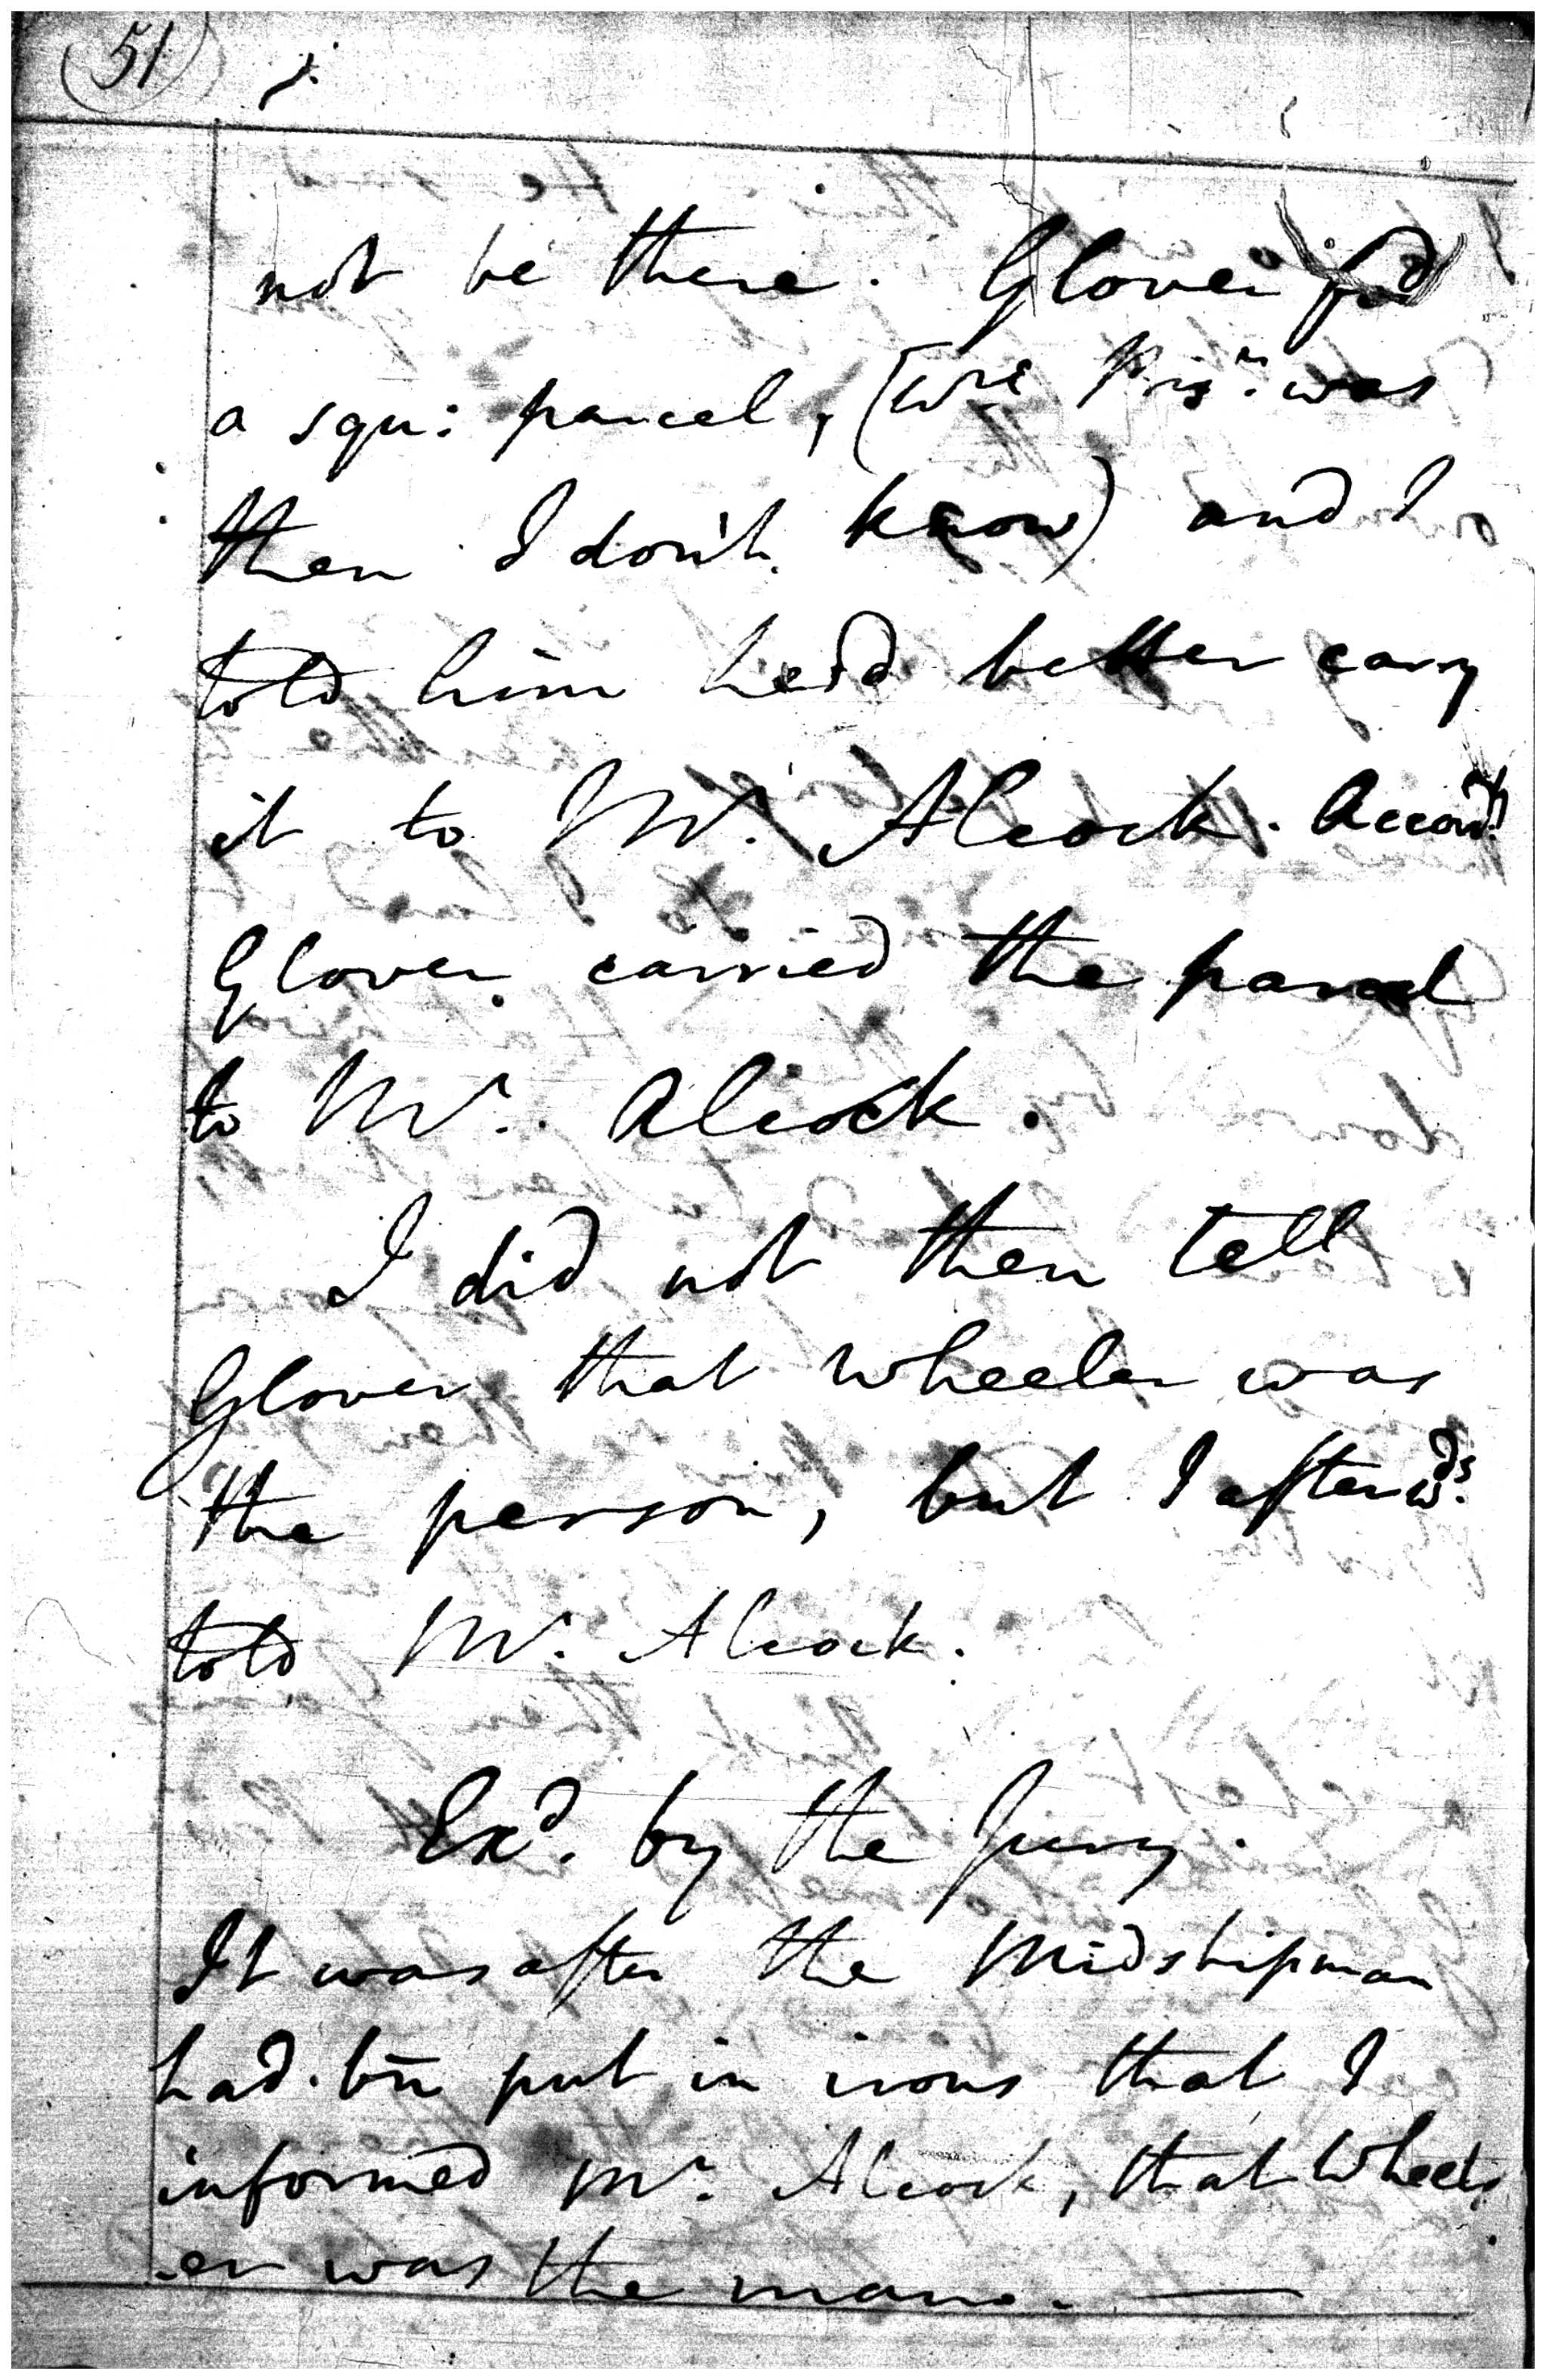 51
not be there. Glover fod
a squ: parcel, (wre Prisr. was
then I don't know) and I
told him he'd better carry
it to Mr. Alcock. Accordy
Glover carried the parcel
to Mr. Alcock.
I did not then tell
Glover that Wheeler was
the person, but I afterwds.
told Mr. Alcock.
Exd. by the Jury.
It was after the Midshipman
had bn put in irons that I
informed Mr. Alcock, that Wheel-
-er was the man. —